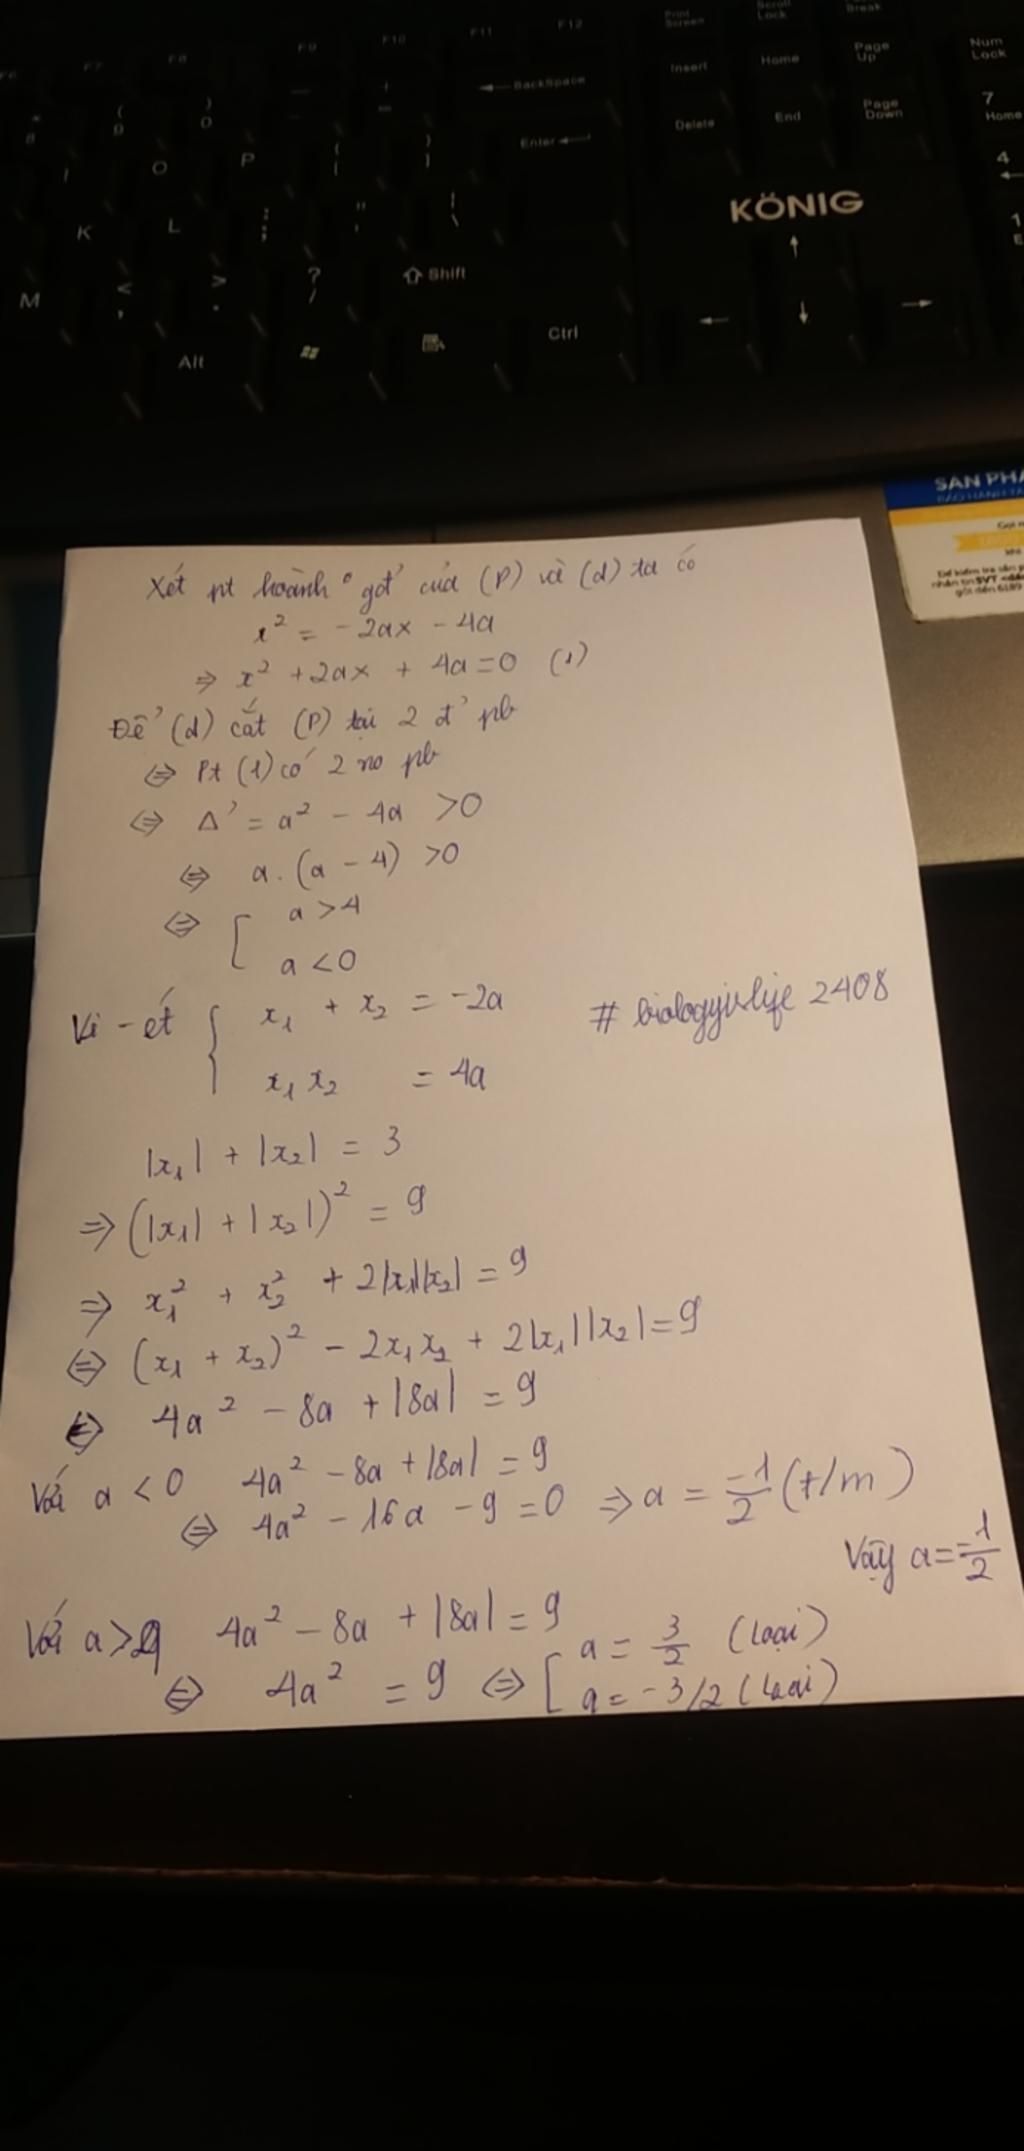 F6 F7 F8 F9 F10 F11 F12 Print Screen Scroll Lock Break
* 8 ( 9 ) 0 — - + = BackSpace Insert Home Page Up Num Lock
I O P { [ } ] Enter Delete End Page Down 7 Home
K L : ; " ' | \ KÖNIG 4
M < , > . ? / Shift 1
Alt Ctrl
SẢN PHẨ
Xét pt hoành ° gđ' của (P) và (d) ta có
x² = -2ax - 4a
⇒ x² + 2ax + 4a = 0 (1)
Để (d) cắt (P) tại 2 đ' pb
⇔ Pt (1) có 2 no pb
⇔ Δ' = a² - 4a > 0
⇔ a.(a - 4) > 0
⇔ [ a > 4
a < 0
Vi-ét { x₁ + x₂ = -2a
# biologyislife 2408
x₁ x₂ = 4a
|x₁| + |x₂| = 3
⇒ (|x₁| + |x₂|)² = 9
⇒ x₁² + x₂² + 2|x₁||x₂| = 9
⇔ (x₁ + x₂)² - 2x₁x₂ + 2|x₁||x₂| = 9
⇔ 4a² - 8a + |8a| = 9
Với a < 0 4a² - 8a + |8a| = 9
⇔ 4a² - 16a - 9 = 0 ⇒ a = -1/2 (t/m)
Vậy a = -1/2
Với a > 4 4a² - 8a + |8a| = 9
⇔ 4a² = 9 ⇔ [ a = 3/2 (loại)
a = -3/2 (loại)